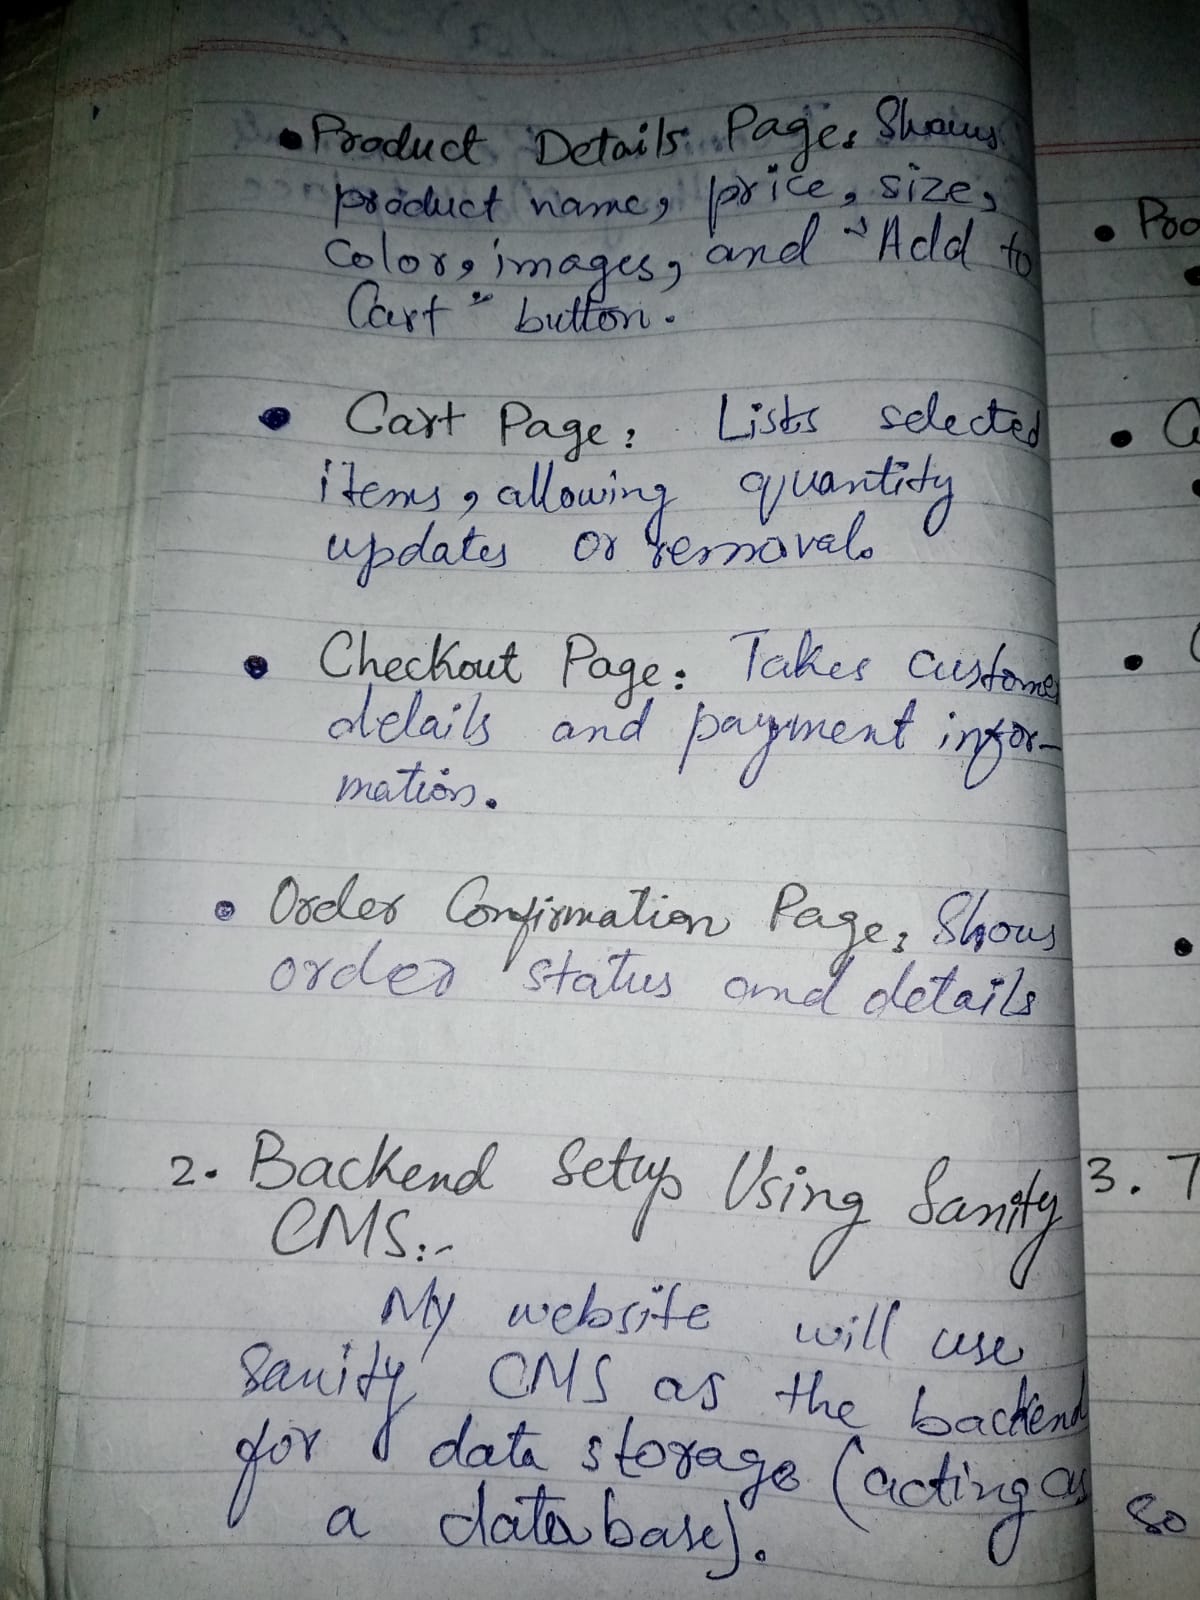 • Product Details Page: Shows
product name, price, size,
Color, images, and "Add to
Cart" button.
• Cart Page: Lists selected
items, allowing quantity
updates or removal.
• Checkout Page: Takes customer
details and payment infor-
mation.
• Order Confirmation Page: Shows
order status and details
2. Backend Setup Using Sanity
CMS:-
My website will use
Sanity CMS as the backend
for data storage (acting as
a database).
• Pro
•
• Ca
•
•
•
3. T
So